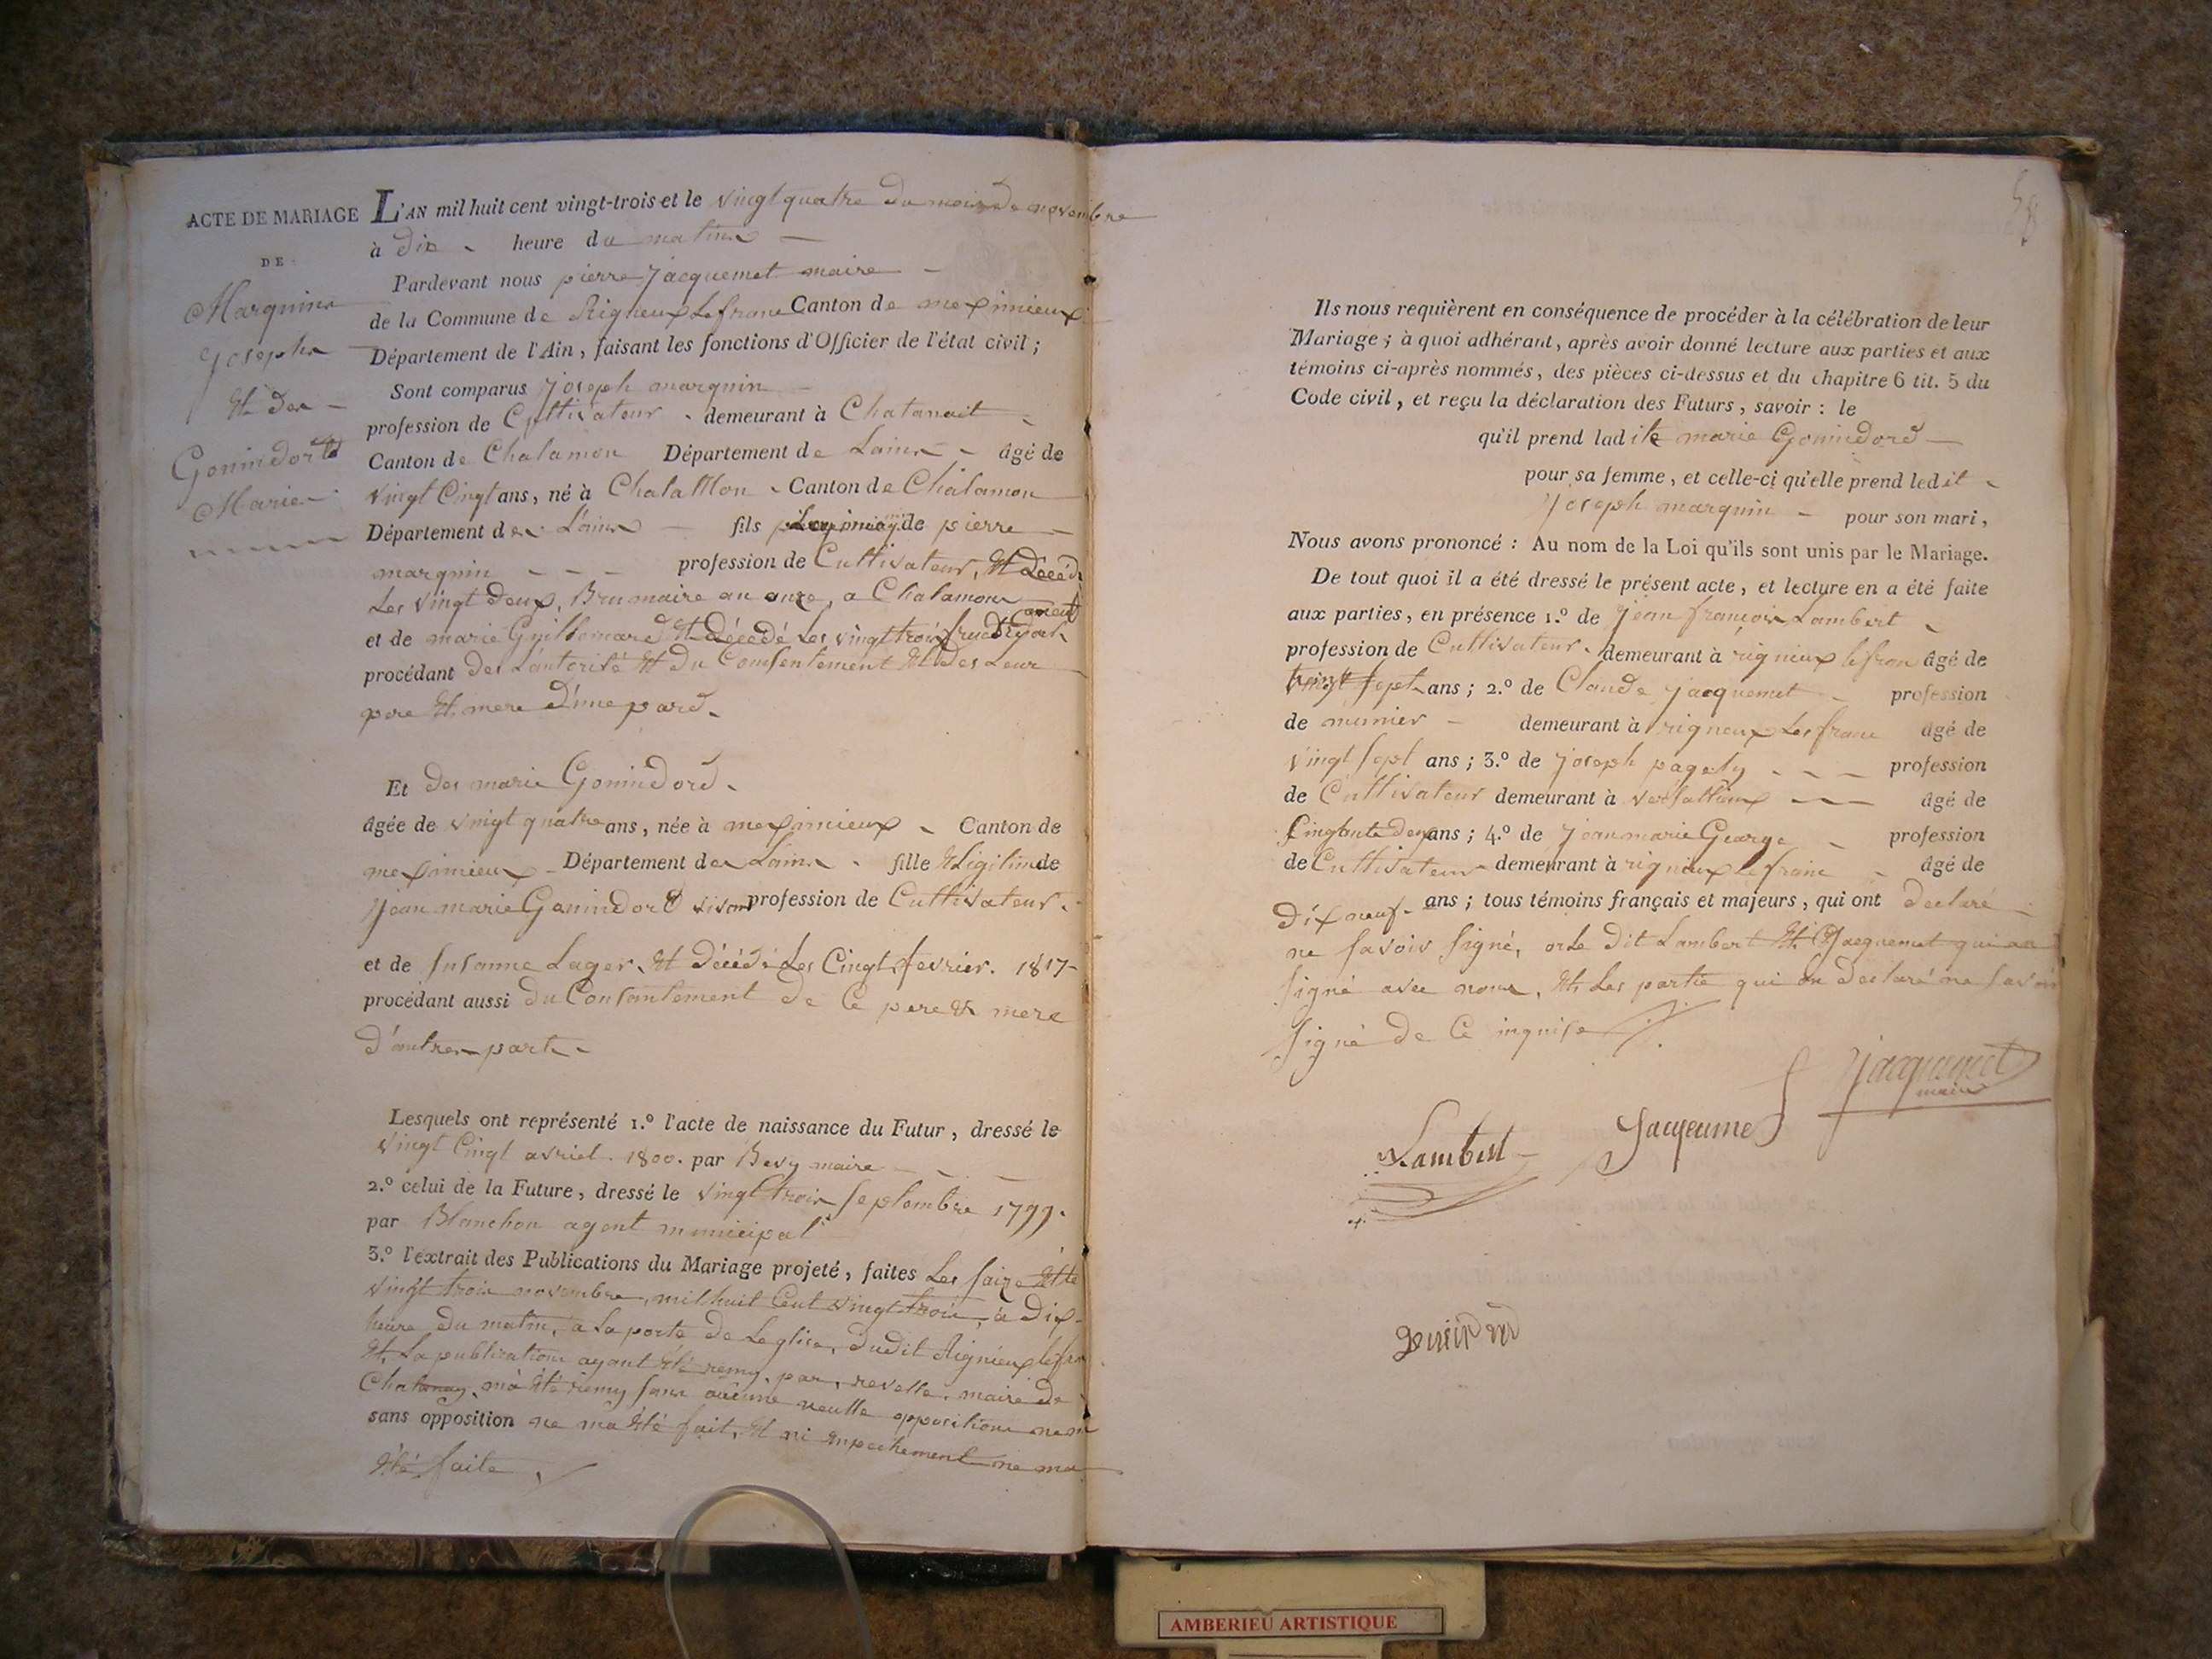 ACTE DE MARIAGE
DE
Marguin
Joseph
Et de
Gonindord
Marie
L'AN mil huit cent vingt-trois et le vingt quatre du mois de novembre
à dix heure du matin
Pardevant nous pierre jacquemet maire
de la Commune de Rigneux Lefranc Canton de meximieux
Département de l'Ain, faisant les fonctions d'Officier de l'état civil ;
Sont comparus joseph marguin
profession de Cultivateur demeurant à Chatanait
Canton de Chalamon Département de Lain âgé de
vingt Cinqt ans, né à Chalamon Canton de Chalamon
Département de Lain fils de pierre
marguin profession de Cultivateur, Et Decédé
Les vingt deux, Brumaire an onze, a Chalamon
et de marie Et décedé Les vingt trois fructidor
procédant de L'autorité Et du Consentement Et de Leur
pere Et mere D'une pard
Et de marie Gonindord
âgée de vingt quatre ans, née à meximieux Canton de
meximieux Département de Lain fille Ligitime de
jean marie Gonindord vivant profession de Cultivateur
et de Susanne Lager Et décédé Les Cinqt fevrier 1817
procédant aussi du Consantement de Ce pere & mere
d'autre part
Lesquels ont représenté 1.º l'acte de naissance du Futur, dressé le
vingt Cinqt avriel 1800. par Bevy maire
2.º celui de la Future, dressé le vingt trois septembre 1799.
par Blanchon agent municipal
3.º l'extrait des Publications du Mariage projeté, faites Les saize Et le
vingt trois novembre, mil huit Cent vingt trois, à dix
heure du matin, a La porte de Leglise, dudit Rignieux lefran
Et La publication ayant Eté remy, par, revelle, maire de
Chatanay, m'a Eté remy sans aucune neulle opposition ne m
sans opposition ne ma Eté fait, Et ni Enpechement ne ma
Eté faite
58
Ils nous requièrent en conséquence de procéder à la célébration de leur
Mariage ; à quoi adhérant, après avoir donné lecture aux parties et aux
témoins ci-après nommés, des pièces ci-dessus et du chapitre 6 tit. 5 du
Code civil, et reçu la déclaration des Futurs, savoir : le
qu'il prend ladite marie Gonindord
pour sa femme, et celle-ci qu'elle prend ledit
joseph marguin pour son mari,
Nous avons prononcé : Au nom de la Loi qu'ils sont unis par le Mariage.
De tout quoi il a été dressé le présent acte, et lecture en a été faite
aux parties, en présence 1.º de jean françois Lambert
profession de Cultivateur demeurant à rignieux lefran âgé de
sept ans ; 2.º de Claude jacquemet profession
de munier demeurant à rigneux Les franc âgé de
vingt sept ans ; 3.º de joseph pagety profession
de Cultivateur demeurant à versallieux âgé de
Cinqtante deux ans ; 4.º de jean marie George profession
de Cultivateur demeurant à rignieux lefranc âgé de
dix neuf ans ; tous témoins français et majeurs, qui ont declaré
ne savoir signé, or Le dit Lambert Et Jacquemet qui on
signé avec nous, Et Les partie qui on declaré ne savoir
signé de Ce inquise
jacquemet
maire
Lambert
Jacqeume
AMBERIEU ARTISTIQUE